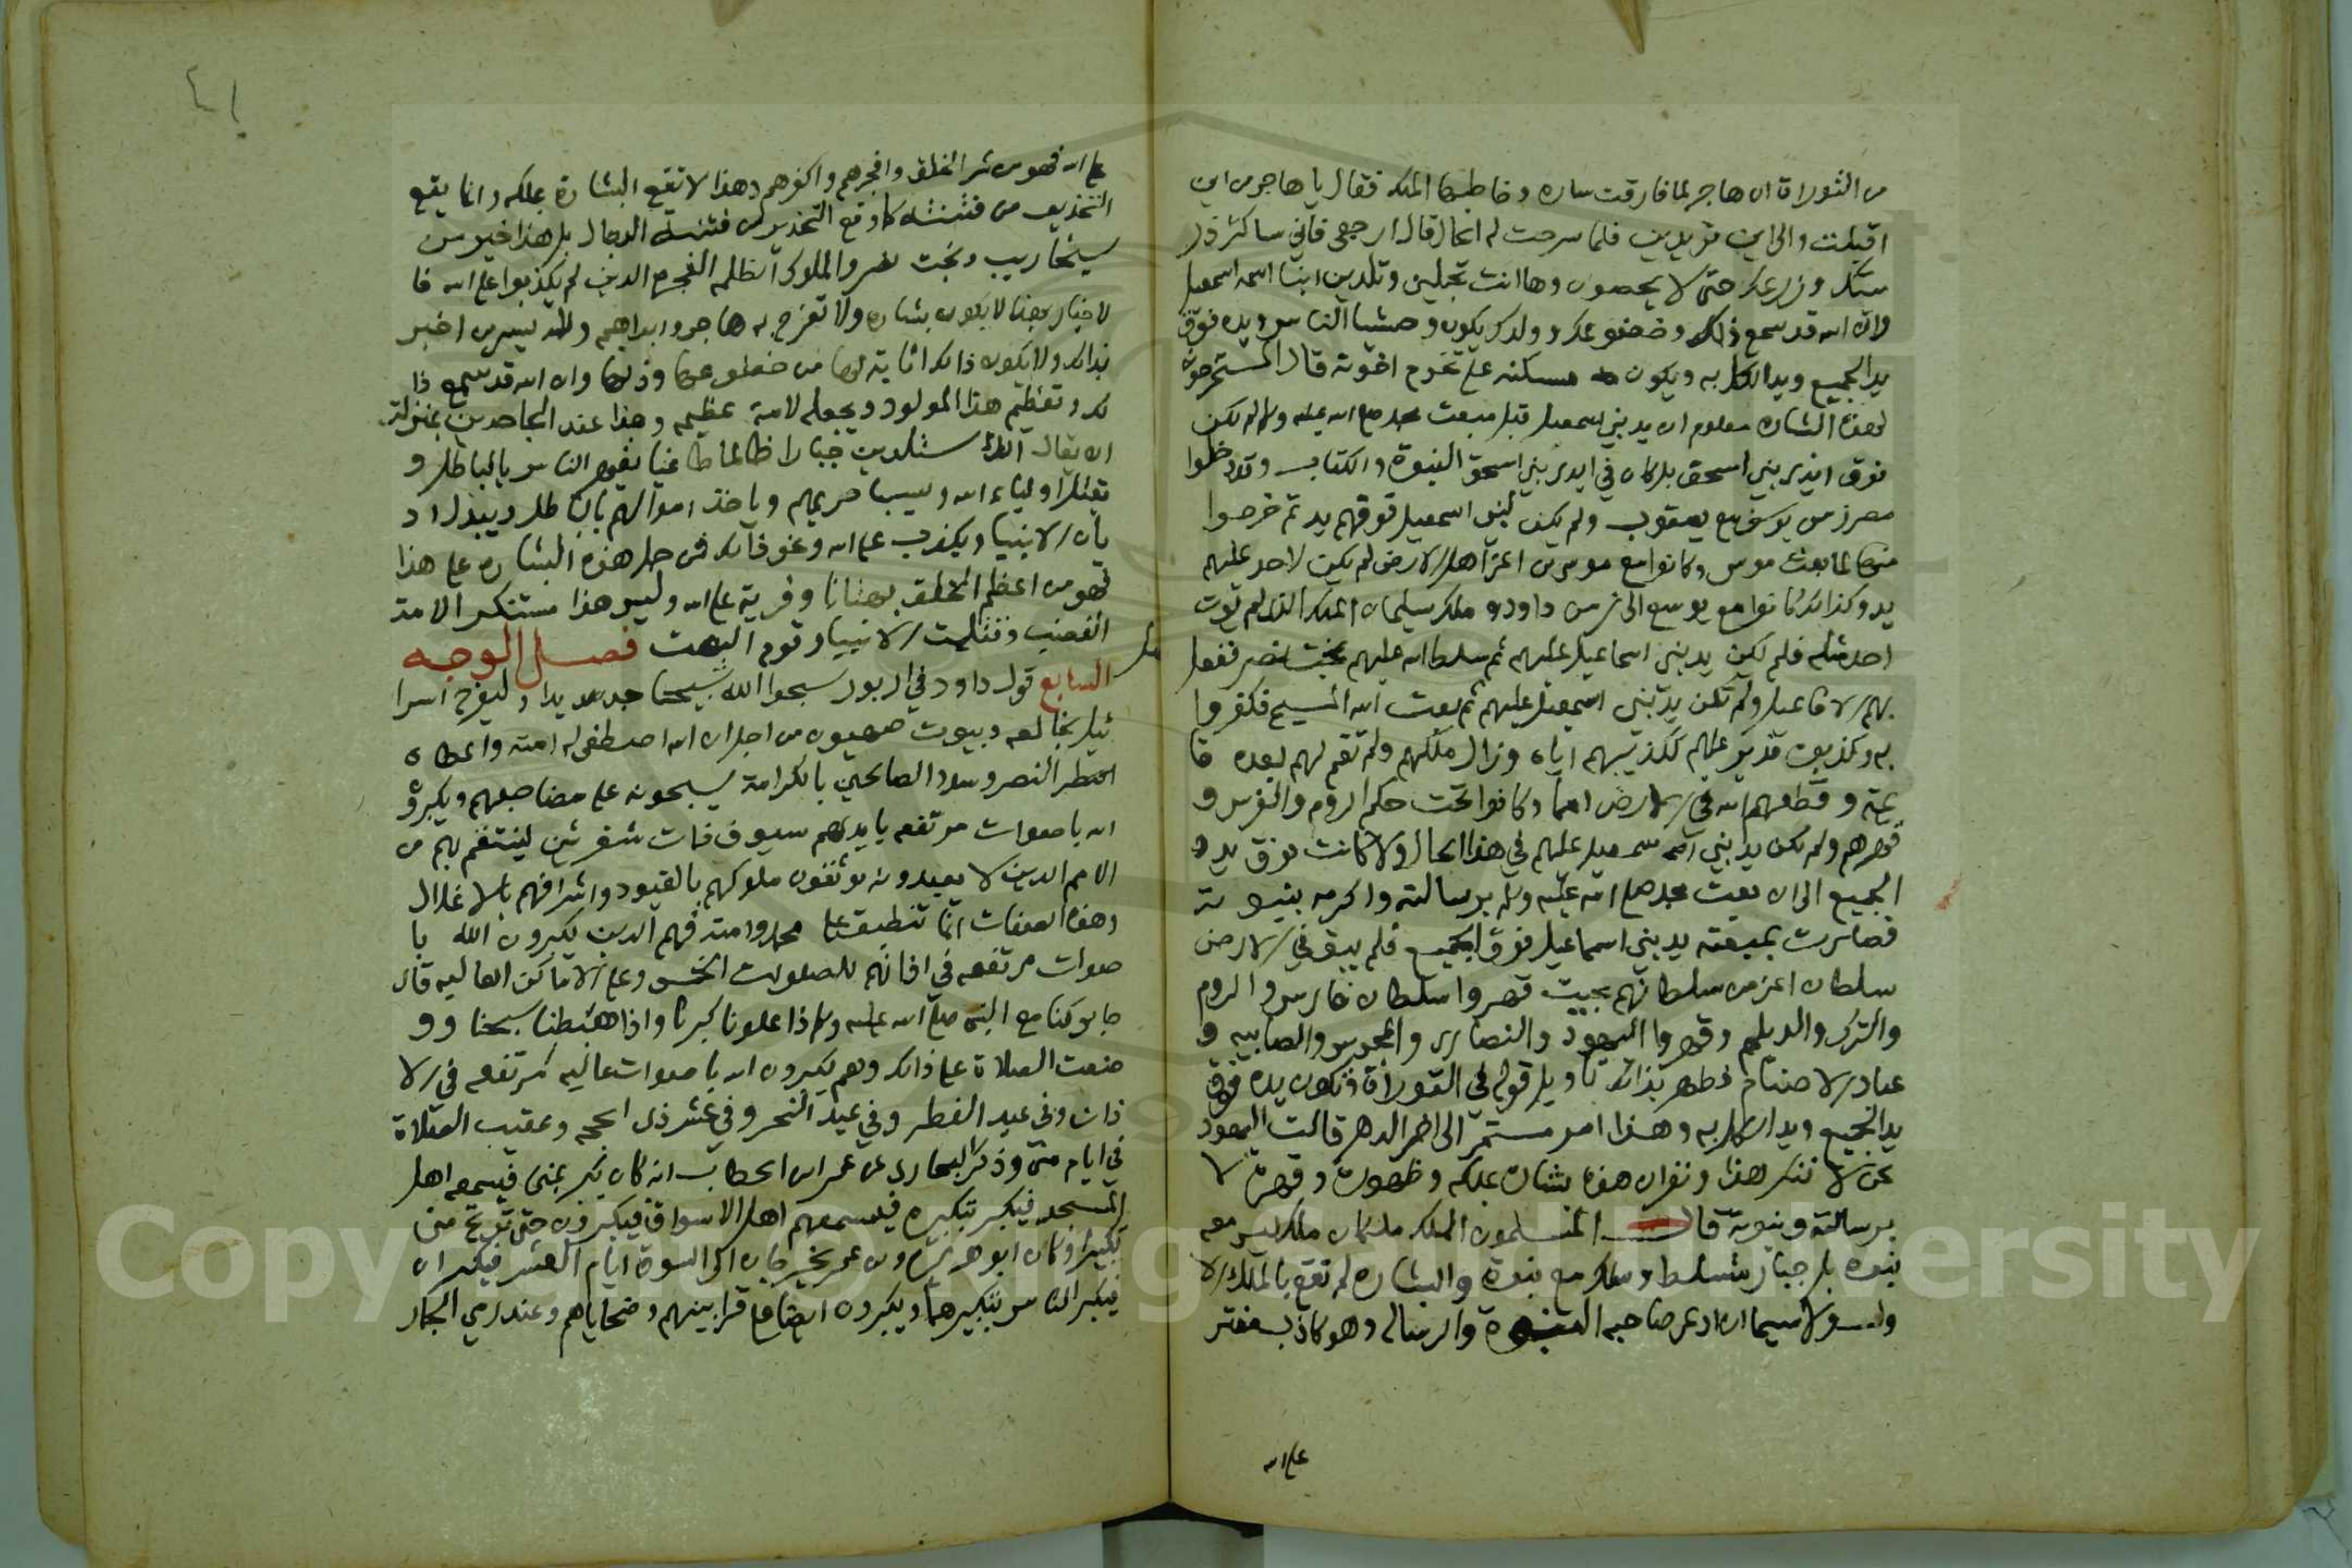 من التوراة ان هاجر لما فارقت ساره وخاطبها الملك فقال يا هاجر من اين
اقبلت والى اين تريدين فلما شرحت له الحال قال ارجعي فاني ساكثر ذر
يتك وزرعك حتى لا يحصون وها انت تحبلين وتلدين ابنا اسمه اسمعيل
لان الله قد سمع ذلك وخضوعك وولدك يكون وحشيا الناس ويده فوق
يد الجميع ويد الكل به ويكون مسكنه على تخوم اخوته قال المستخرجون
لهذه البشاره معلوم ان يد بني اسمعيل قبل مبعث محمد صلى الله عليه وسلم لم تكن
فوق ايدي بني اسحق بل كان في ايدي بني اسحق النبوة والكتاب وقد دخلوا
مصر زمن يوسف مع يعقوب ولم يكن لبني اسمعيل فوقهم يد ثم خرجوا
منها لما بعث موسى وكانوا مع موسى من اعز اهل الارض لم يكن لاحد عليهم
يد وكذلك كانوا مع يوشع الى زمن داود وملك سليمان الملك الذي لم يوت
احد مثله فلم يكن يد بني اسماعيل عليهم ثم سلط الله عليهم بخت نصر ففعل
بهم الافاعيل ولم تكن يد بني اسمعيل عليهم ثم بعث الله المسيح فكفروا
به وكذبوه فدمر عليهم تكذيبهم اياه وزال ملكهم ولم تقم لهم بعده قا
يمة وقطعهم الله في الارض امما وكانوا تحت حكم الروم والفرس و
قهرهم ولم تكن يد بني اسمعيل عليهم في هذا الحال ولا كانت فوق يد
الجميع الى ان بعث محمد صلى الله عليه وسلم برسالته واكرمه بنبوته
فصارت بمبعثه يد بني اسماعيل فوق الجميع فلم يبق في الارض
سلطان اعز من سلطانهم بحيث قهروا سلطان فارس والروم
والترك والديلم وقهروا اليهود والنصارى والمجوس والصابيه و
عباد الاصنام فظهر بذلك تاويل قوله في التوراة وتكون يده فوق
يد الجميع ويد الكل به وهذا امر مستمر الى اخر الدهر قالت اليهود
نحن لا ننكر هذا ونقر ان هذه بشارة بملكه وظهوره وقهره لا
برسالته ونبوته قالت المسلمون الملك ملكان ملك ليس معه
نبوة بل جبار متسلط وملك مع نبوة والبشاره لم تقع بالملك الا
ول ولا سيما ان ادعى صاحبه النبوة والرساله وهو كاذب مفتر
على الله
٤١
على الله فهو من شر الخلق وافجرهم واكفرهم وهذا لا تقع البشارة بملكه وانما يقع
التحذير من فتنته كما وقع التحذير من فتنة الدجال بل هذا خير من
سنحاريب وبخت نصر والملوك الظلمه الفجره الذين لم يكذبوا على الله فا
لاخبار بهذا لا يكون بشاره ولا تفرح به هاجر وابراهيم ولا يبشر من اخبر
بذلك ولا يكون ذلك اثابة لها من خضوعها وذلها وان الله قد سمع ذا
لك وتعظيم هذا المولود ويجعله لامة عظيمه وهذا عند الجاحدين بمنزلة
ان يقال انك ستلدين جبارا ظالما طاغيا يقهر الناس بالباطل و
يقتل اولياء الله ويسبي حريمهم وياخذ اموالهم بالباطل ويبدل اد
يان الانبيا ويكذب على الله ونحو ذلك فمن حمل هذه البشاره على هذا
فهو من اعظم الخلق بهتانا وفرية على الله وليس هذا مستنكر الامة
الغضب وقتلت الانبيا وقوم البهت فصل الوجه
السابع قول داود في الزبور سبحوا الله تسبيحا جديدا وليفرح اسرا
ئيل بخالقه وبيوت صهيون من اجل ان الله اصطفى له امته واعطاه
النصر وسدد الصالحين بالكرامة يسبحونه على مضاجعهم ويكبرو
الله باصوات مرتفعه بايديهم سيوف ذات شفرتين لينتقم بهم من
الامم الذين لا يعبدونه يوثقون ملوكهم بالقيود واشرافهم بالاغلال
وهذه الصفات انما تنطبق على محمد وامته فهم الذين يكبرون الله با
صوات مرتفعه في اذانهم للصلوات الخمس وعلى الاماكن العاليه قال
جابر كنا مع النبي صلى الله عليه وسلم اذا علونا كبرنا واذا هبطنا سبحنا وو
ضعت الصلاة على ذلك وهم يكبرون الله باصوات عاليه مرتفعه في الا
ذان وفي عيد الفطر وفي عيد النحر وفي عشر ذي الحجه وعقيب الصلاة
في ايام منى وذكر البخاري عن عمر ابن الخطاب انه كان يكبر بمنى فيسمعه اهل
المسجد فيكبر بتكبيره فيسمعهم اهل الاسواق فيكبرون حتى ترتج منى
تكبيرا وكان ابو هريرة وابن عمر يخرجان الى السوق ايام العشر فيكبران
فيكبر الناس بتكبيرهما ويكبرون ايضا على قرابينهم وضحاياهم وعند رمي الجمار
Copyright © King Saud University